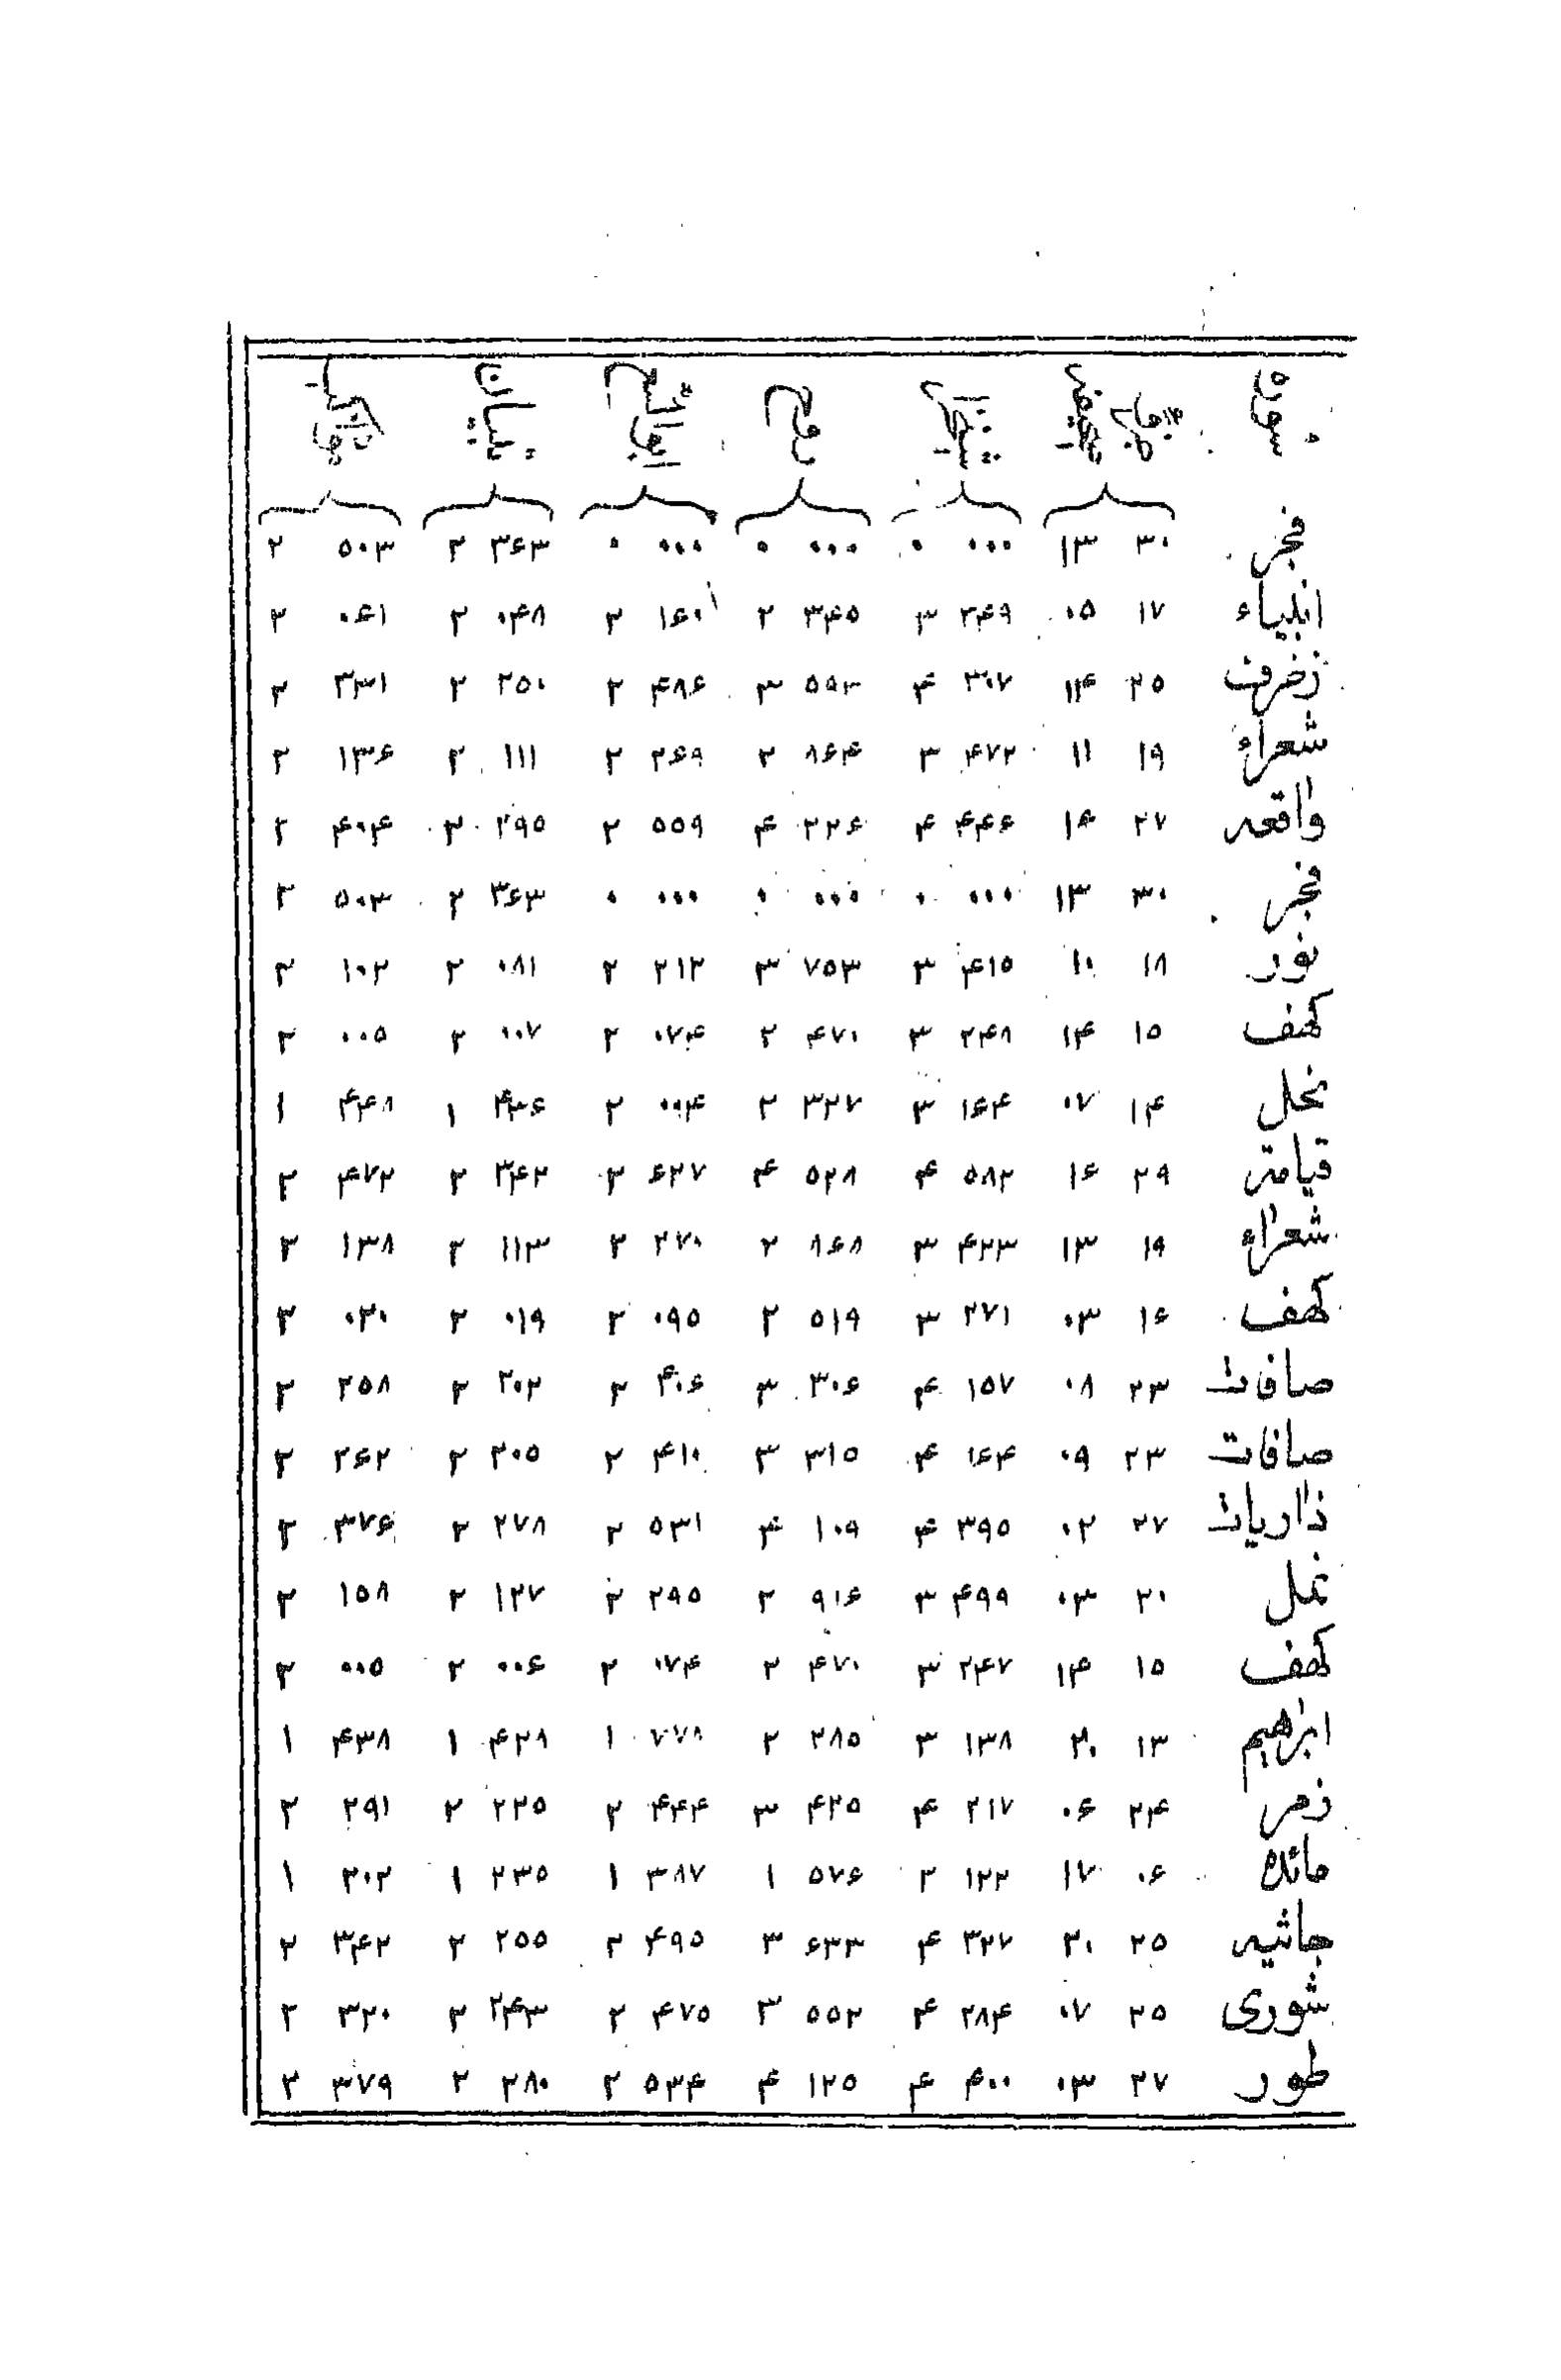 سوره جزء صفحه روح تبیان
فجر ۳۰ ۱۳ ۰۰۰ ۰ ۰۰۰ ۰ ۰۰۰ ۰ ۳۶۳ ۲ ۵۰۳ ۲
انبیاء ۱۷ ۰۵ ۲۴۹ ۳ ۳۴۵ ۲ ۱۶۰ ۲ ۰۴۸ ۲ ۰۶۱ ۲
زخرف ۲۵ ۱۴ ۳۰۷ ۴ ۵۹۳ ۳ ۴۸۶ ۲ ۲۵۰ ۲ ۳۳۱ ۲
شعراء ۱۹ ۱۱ ۴۷۲ ۳ ۸۶۴ ۲ ۲۶۹ ۲ ۱۱۱ ۲ ۱۳۶ ۲
واقعه ۲۷ ۱۶ ۴۴۶ ۴ ۲۲۶ ۴ ۵۵۹ ۲ ۲۹۵ ۲ ۴۰۴ ۲
فجر ۳۰ ۱۳ ۰۰۰ ۰ ۰۰۰ ۰ ۰۰۰ ۰ ۳۶۳ ۲ ۵۰۳ ۲
نور ۱۸ ۱۰ ۴۱۵ ۳ ۷۵۳ ۳ ۲۱۲ ۲ ۰۸۱ ۲ ۱۰۲ ۲
کهف ۱۵ ۱۴ ۲۴۸ ۳ ۴۷۰ ۲ ۰۷۴ ۲ ۰۰۷ ۲ ۰۰۵ ۲
نحل ۱۴ ۰۷ ۱۶۴ ۳ ۳۲۷ ۲ ۰۰۴ ۲ ۴۳۶ ۱ ۴۴۸ ۱
قیامة ۲۹ ۱۶ ۵۸۲ ۴ ۵۲۸ ۴ ۶۲۷ ۲ ۳۴۲ ۲ ۴۷۲ ۲
شعراء ۱۹ ۱۳ ۴۲۳ ۳ ۸۶۸ ۲ ۲۷۰ ۲ ۱۱۳ ۲ ۱۳۸ ۲
کهف ۱۶ ۰۳ ۲۷۱ ۳ ۵۱۹ ۲ ۰۹۵ ۲ ۰۱۹ ۲ ۰۲۰ ۲
صافات ۲۳ ۰۸ ۱۵۷ ۴ ۳۰۶ ۳ ۴۰۶ ۲ ۲۰۲ ۲ ۲۵۸ ۲
صافات ۲۳ ۰۹ ۱۶۴ ۴ ۳۱۵ ۳ ۴۱۰ ۲ ۲۰۵ ۲ ۲۶۲ ۲
ذاریات ۲۷ ۰۲ ۳۹۵ ۴ ۱۰۹ ۴ ۵۳۱ ۲ ۲۷۸ ۲ ۳۷۶ ۲
نمل ۲۰ ۰۳ ۴۹۹ ۳ ۹۱۶ ۲ ۲۹۵ ۲ ۱۲۷ ۲ ۱۵۸ ۲
کهف ۱۵ ۱۴ ۲۴۷ ۳ ۴۷۰ ۲ ۰۷۴ ۲ ۰۰۶ ۲ ۰۰۵ ۲
ابراهیم ۱۳ ۲۰ ۱۳۸ ۳ ۲۸۵ ۲ ۷۷۸ ۱ ۴۲۸ ۱ ۴۳۸ ۱
زمر ۲۴ ۰۶ ۲۱۷ ۴ ۴۲۵ ۳ ۴۴۴ ۲ ۲۲۵ ۲ ۲۹۱ ۲
مائده ۰۶ ۱۷ ۱۲۲ ۲ ۵۷۶ ۱ ۳۸۷ ۱ ۲۳۵ ۱ ۲۰۲ ۱
جاثیه ۲۵ ۲۰ ۳۲۷ ۴ ۶۳۳ ۳ ۴۹۵ ۲ ۲۵۵ ۲ ۳۴۲ ۲
شوری ۲۵ ۰۷ ۲۸۴ ۴ ۵۵۲ ۳ ۴۷۵ ۲ ۲۴۳ ۲ ۳۲۰ ۲
طور ۲۷ ۰۳ ۴۰۰ ۴ ۱۲۵ ۴ ۵۳۴ ۲ ۲۸۰ ۲ ۳۷۹ ۲